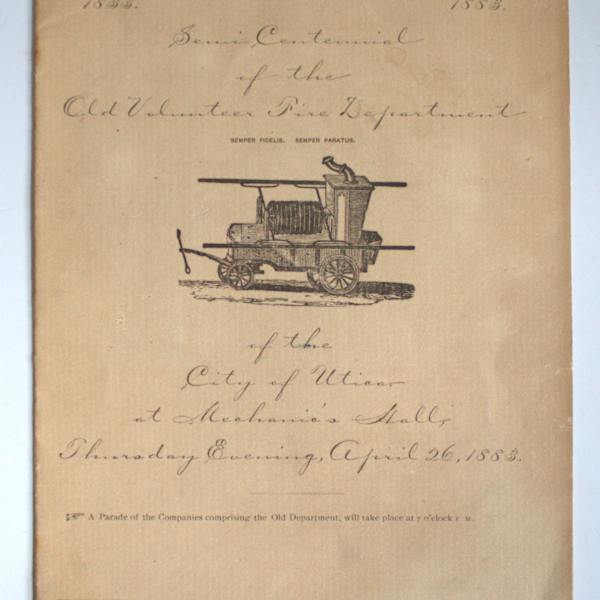 1833. 1883.
Semi Centennial
of the
Old Volunteer Fire Department
SEMPER FIDELIS. SEMPER PARATUS.
of the
City of Utica
at Mechanic's Hall,
Thursday Evening, April 26, 1883.
☞ A Parade of the Companies comprising the Old Department, will take place at 7 o'clock P. M.